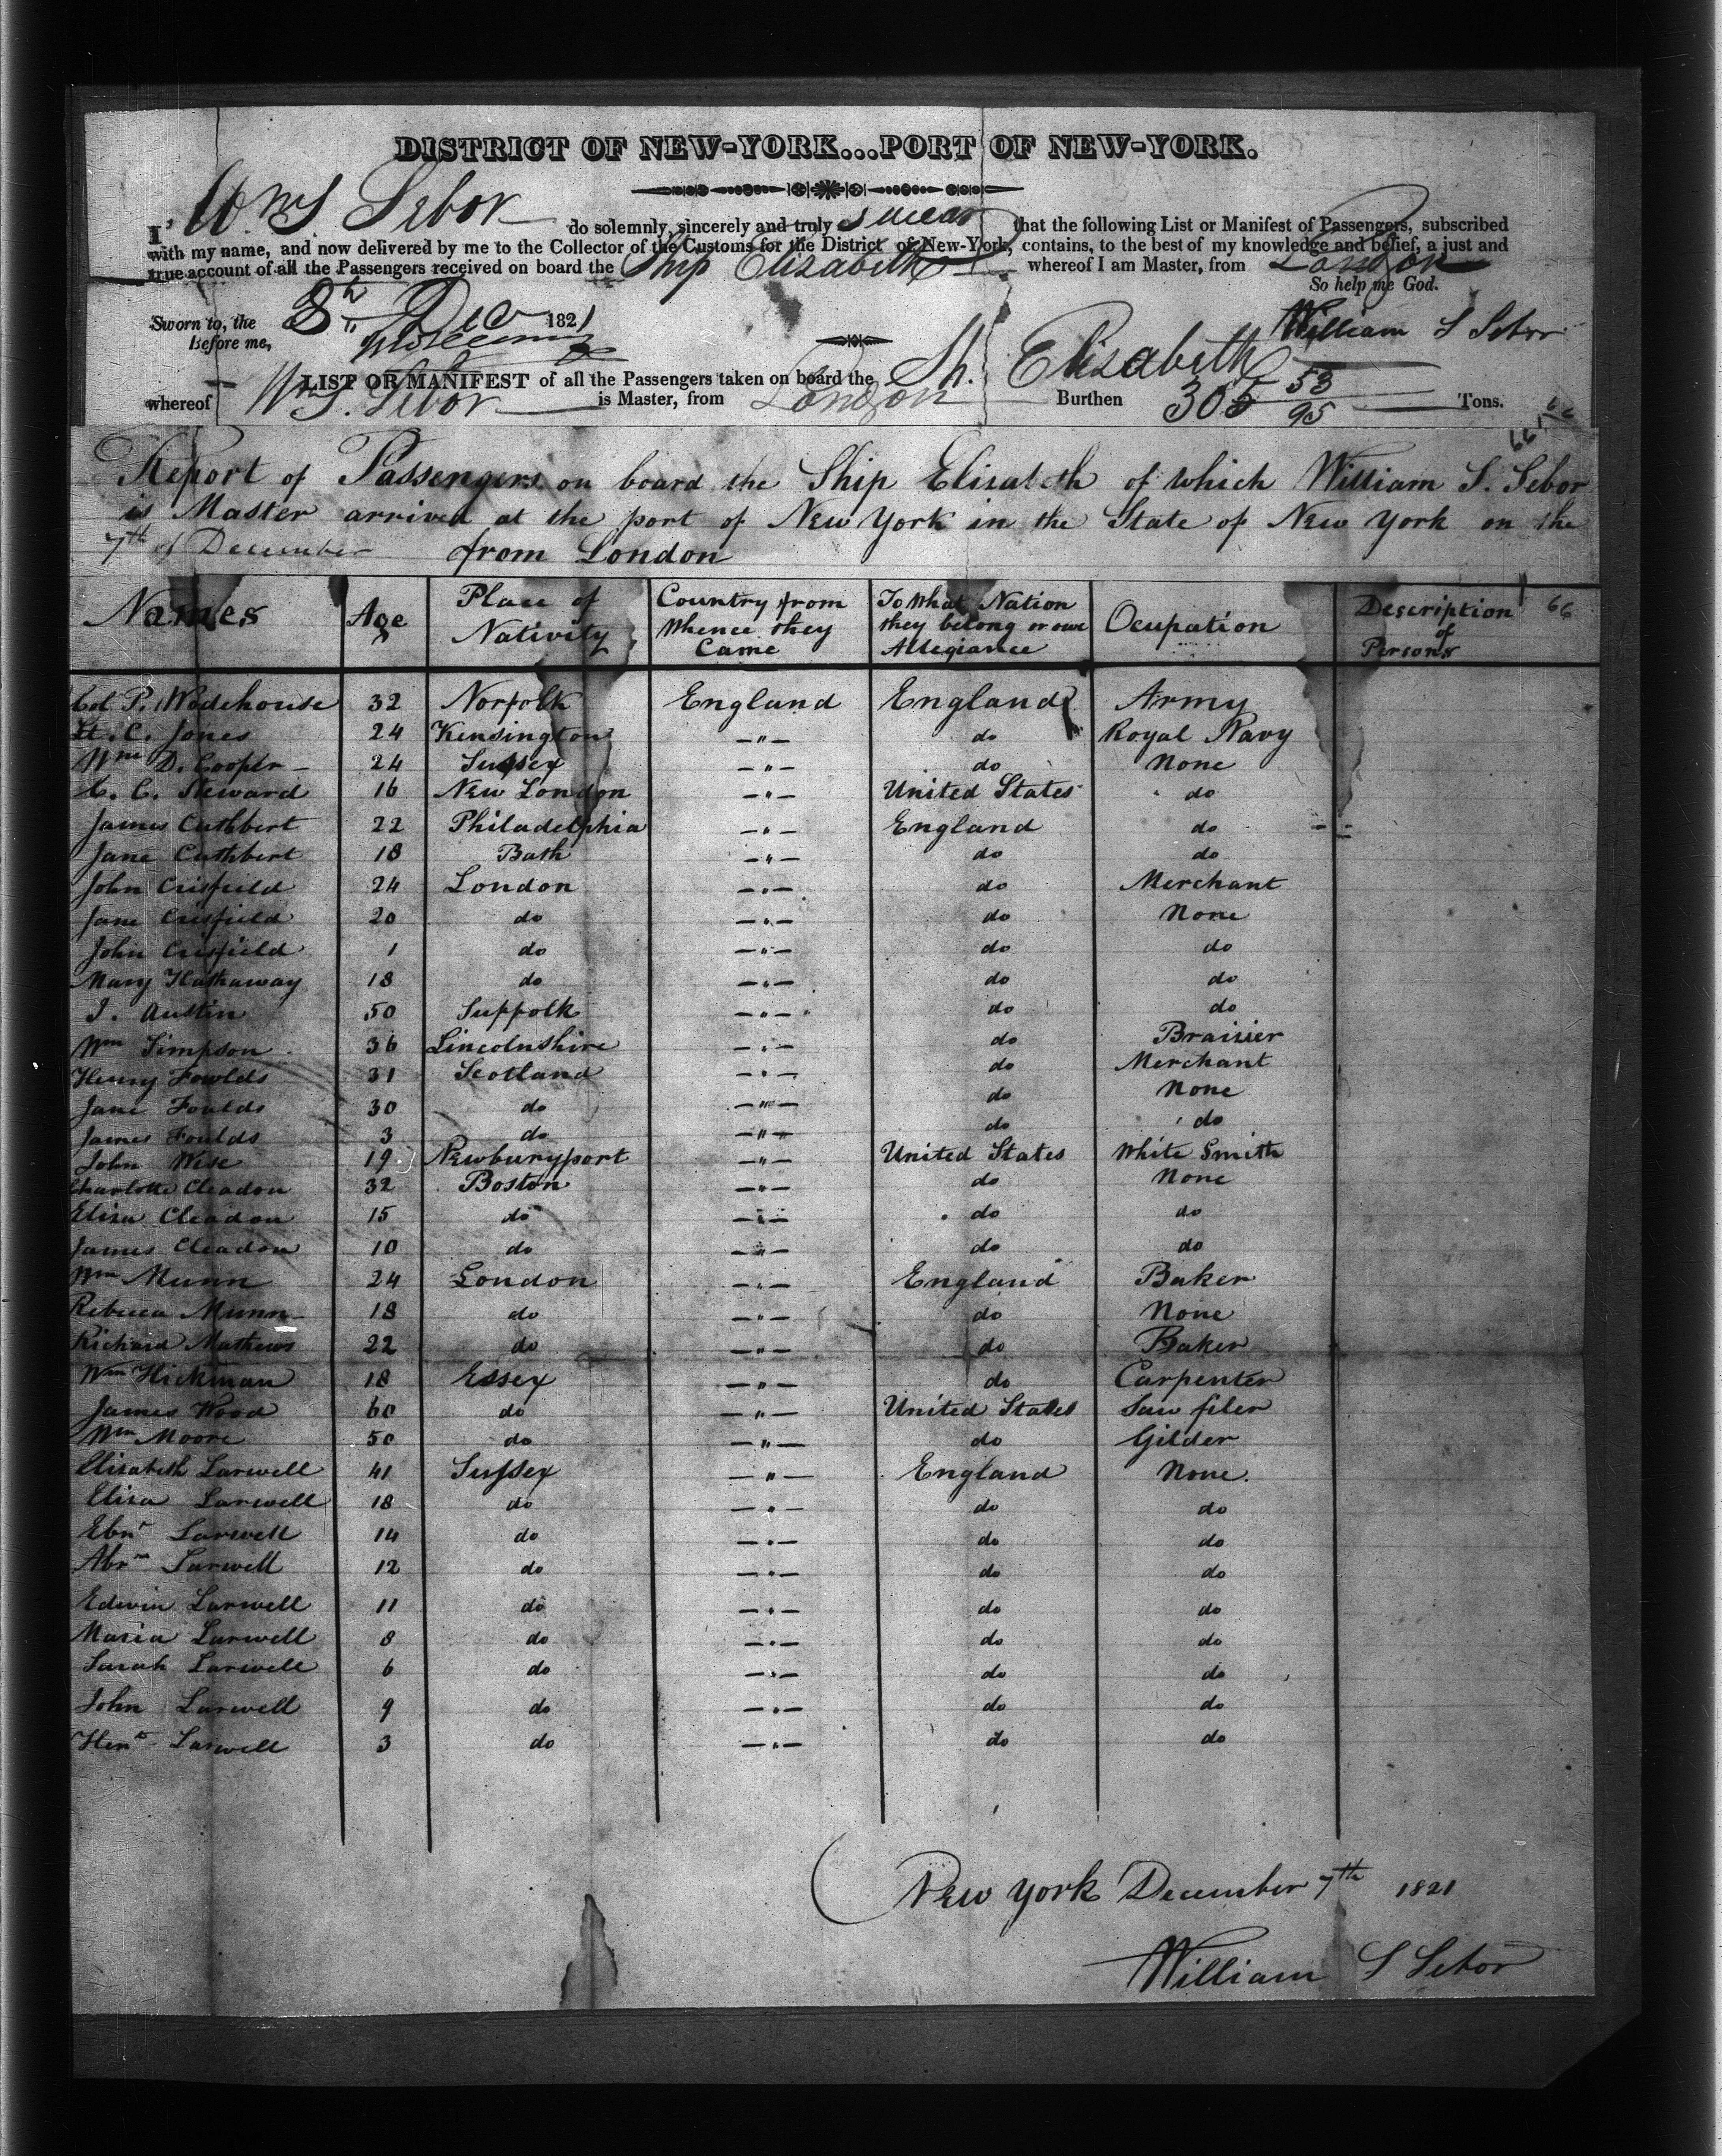 DISTRICT OF NEW-YORK...PORT OF NEW-YORK.
I, Wm S Sebor do solemnly, sincerely and truly swear that the following List or Manifest of Passengers, subscribed
with my name, and now delivered by me to the Collector of the Customs for the District of New-York, contains, to the best of my knowledge and belief, a just and
true account of all the Passengers received on board the Ship Elizabeth whereof I am Master, from London
So help me God.
Sworn to, the 8th Dec 1821
Before me,
William S Sebor
LIST OR MANIFEST of all the Passengers taken on board the Sh. Elisabeth
whereof Wm S. Sebor is Master, from London Burthen 305 53/95 Tons.
Report of Passengers on board the Ship Elisabeth of which William S. Sebor
is Master arrived at the port of New York in the State of New York on the
7th of December from London
Names Age Place of Nativity Country from Whence they Came To What Nation they belong or owe Allegiance Ocupation Description of Persons 66
Col P. Wodehouse 32 Norfolk England England Army
Lt. C. Jones 24 Kensington —"— do Royal Navy
Wm D. Cooper 24 Sussex —"— do None
C. Steward 16 New London —"— United States do
James Cuthbert 22 Philadelphia —"— England do
Jane Cuthbert 18 Bath —"— do do
John Crisfield 24 London —"— do Merchant
Jane Crisfield 20 do —"— do None
John Crisfield 1 do —"— do do
Mary Hathaway 18 do —"— do do
J. Austin 50 Suffolk —"— do do
Wm Simpson 36 Lincolnshire —"— do Braisier
Henry Fowlds 31 Scotland —"— do Merchant
Jane Foulds 30 do —"— do None
James Foulds 3 do —"— do do
John Wise 19 Newburyport —"— United States White Smith
Charlotte Cleadon 32 Boston —"— do None
Elisa Cleadon 15 do —"— do do
James Cleadon 10 do —"— do do
Wm Munn 24 London —"— England Baker
Rebecca Munn 18 do —"— do None
Richard Mathews 22 do —"— do Baker
Wm Hickman 18 Essex —"— do Carpenter
James Wood 60 do —"— United States Saw filer
Wm Moore 50 do —"— do Gilder
Elisabeth Larwell 41 Sussex —"— England None.
Elisa Larwell 18 do —"— do do
Ebnr Larwell 14 do —"— do do
Abrm Larwell 12 do —"— do do
Edwin Larwell 11 do —"— do do
Maria Larwell 8 do —"— do do
Sarah Larwell 6 do —"— do do
John Larwell 9 do —"— do do
Larwell 3 do —"— do do
New York December 7th 1821
William S Sebor